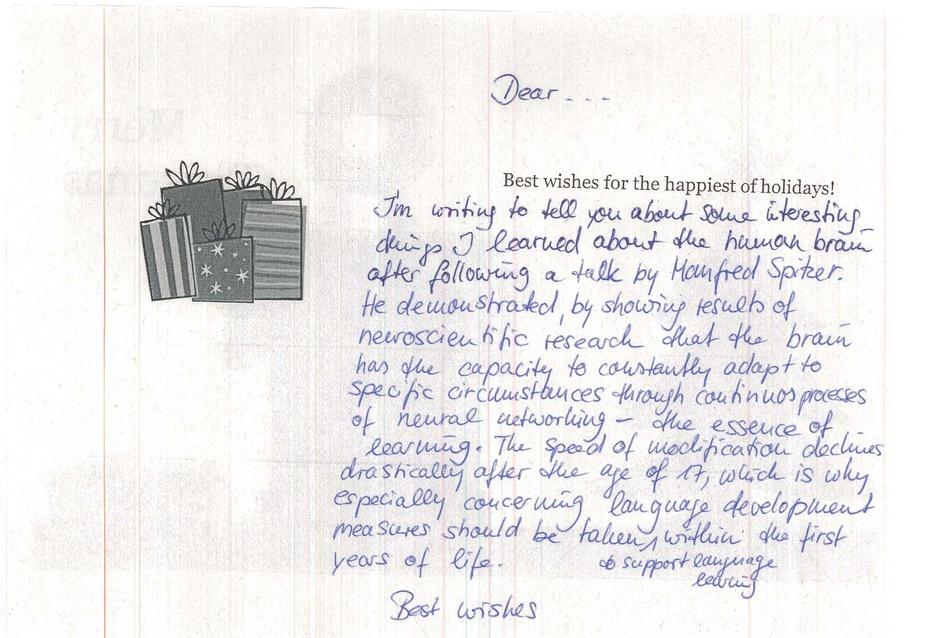 Dear - - -
Best wishes for the happiest of holidays!
I'm writing to tell you about some interesting
things I learned about the human brain
after following a talk by Manfred Spitzer.
He demonstrated, by showing results of
neuroscientific research that the brain
has the capacity to constantly adapt to
specific circumstances through continuos processes
of neural networking – the essence of
learning. The speed of modification declines
drastically after the age of 17, which is why
especially concerning language development
measures should be taken, within the first
years of life.
to support language
learning
Best wishes